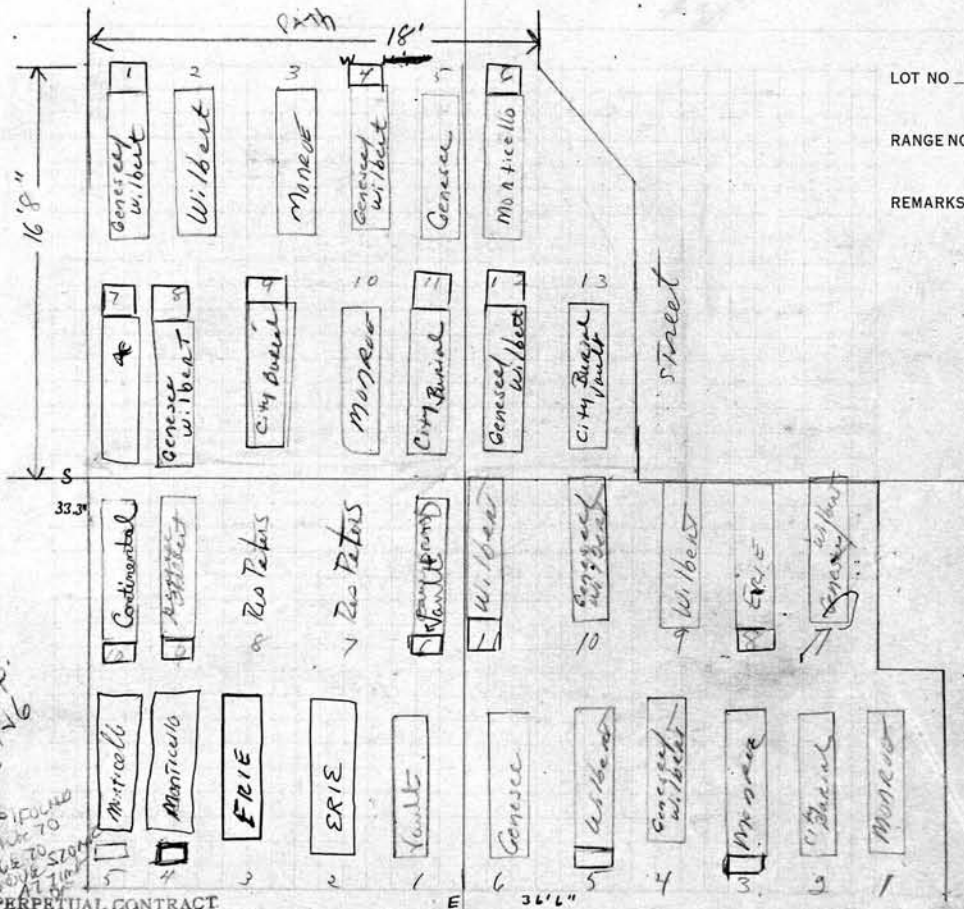 Path
18'
W
16'8"
LOT NO
RANGE NO
REMARKS
1 2 3 4 5
Genesee/ Wilbert
Wilbert
MONROE
Genesee/ Wilbert
Genesee
Monticello
7 8 9 10 11 12 13
Genesee Wilbert
City Burial
MONROE
City Burial
Genesee/ Wilbert
City Burial Vault
Street
S
33.3"
Continental
Res Peters
Res Peters
Vault
Wilbert
Genesee/ Wilbert
Wilbert
ERIE
Genesee/ Wilbert
8 7 10 9 7
Monticello
Monticello
ERIE
ERIE
Vault
Genesee
Wilbert
Genesee/ Wilbert
Monroe
City Burial
MONROE
5 4 3 2 1 6 5 4 3 2 1
PERPETUAL CONTRACT
E
36'6"